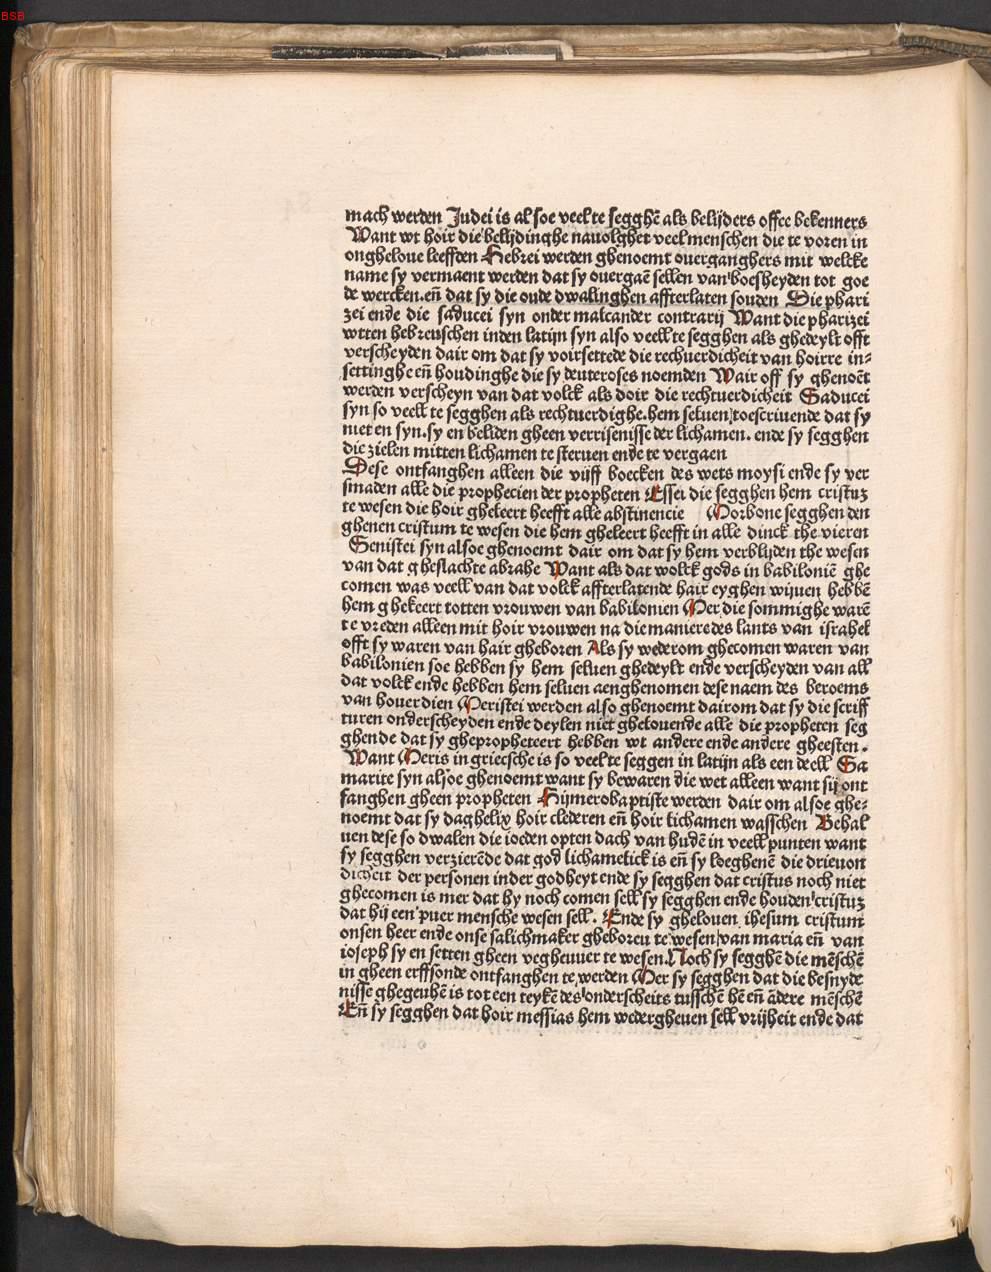 BSB
mach werden Judei is al soe veel te segghē als belijders offce bekenners
Want wt hoir die belijdinghe navolghet veel menschen die te voren in
onghelove leeffden Hebrei werden ghenoemt overganghers mit welcke
name sy vermaent werden dat sy overgaē sellen van boesheyden tot goe
de wercken.eñ dat sy die oude dwalinghen affterlaten souden Die phari
zei ende die saducei syn onder malcander contrarij Want die pharizei
wtten hebreuschen inden latijn syn also veel te segghen als ghedeylt offt
verscheyden dair om dat sy voirsettede die rechuerdicheit van hoirre in-
settinghe eñ houdinghe die sy deuteroses noemden Wair off sy ghenoēt
werden verscheyn van dat volck als doir die rechtuerdicheit Saducei
syn so veell te segghen als rechtuerdighe.hem seluen toescriuende dat sy
niet en syn.sy en beliden gheen verrisenisse der lichamen. ende sy segghen
die zielen mitten lichamen te steruen ende te vergaen
Dese ontfanghen alleen die vijff boecken des wets moysi ende sy ver
smaden alle die prophecien der propheten Essei die segghen hem cristuz
te wesen die hoir ghekeert heefft alle abstinencie Morbone segghen den
ghenen cristum te wesen die hem gheleert heefft in alle dinck the vieren
Senistei syn alsoe ghenoemt dair om dat sy hem verblyden the wesen
van dat gheslachte abrahe Want als dat wolck gods in babiloniē ghe
comen was veell van dat volck affterlatende hair eyghen wijuen hebbē
hem ghekeert totten vrouwen van babilonien Mer die sommighe warē
te vreden alleen mit hoir vrouwen na die maniere des lants van israhel
offt sy waren van hair gheboren Als sy wederom ghecomen waren van
babilonien soe hebben sy hem seluen ghedeylt ende verscheyden van all
dat volck ende hebben hem seluen aenghenomen dese naem des beroems
van houerdien Meristei werden also ghenoemt dairom dat sy die scriff
turen onderscheyden ende deylen niet ghelouende alle die propheten seg
ghende dat sy ghepropheteert hebben wt andere ende andere gheesten.
Want Meris in griecsche is so veel te seggen in latijn als een deell Sa
marite syn alsoe ghenoemt want sy bewaren die wet alleen want sij ont
fanghen gheen propheten Hijmerobaptiste werden dair om alsoe ghe-
noemt dat sy daghelix hoir clederen eñ hoir lichamen wasschen Behal
uen dese so dwalen die ioeden opten dach van hudē in veell punten want
sy segghen verzierēde dat god lichamelick is eñ sy loeghenē die drieuon
dicheit der personen inder godheyt ende sy segghen dat cristus noch niet
ghecomen is mer dat hy noch comen sell sy segghen ende houden cristuz
dat hij een puer mensche wesen sell. Ende sy ghelouen ihesum cristum
onsen heer ende onse salichmaker gheboreu te wesen van maria eñ van
ioseph sy en setten gheen vegheuuer te wesen Noch sy segghē die mēschē
in gheen erffsonde ontfanghen te werden Mer sy segghen dat die besnyde
nisse ghegeuhē is tot een teykē des onderscheits tusschē hē eñ ādere mēschē
Eñ sy segghen dat hoir messias hem wedergheuen sell vrijheit ende dat